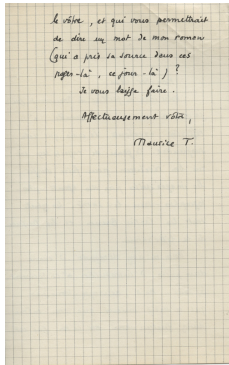 le vôtre, et qui vous permettrait
de dire un mot de mon roman
(qui a pris sa source dans ces
pages-là, ce jour-là) ?
Je vous laisse faire.
Affectueusement vôtre,
Maurice T.